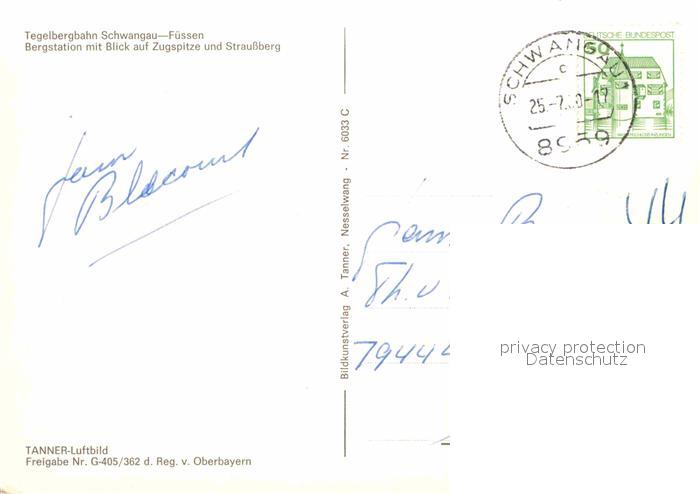 Tegelbergbahn Schwangau—Füssen
Bergstation mit Blick auf Zugspitze und Straußberg
DEUTSCHE BUNDESPOST
50
SCHWANGAU 1
c
25.-7.80-17
8959
Fam
Blacourt
Bildkunstverlag A. Tanner, Nesselwang - Nr. 6033 C
Fam.
Th. v
79444
privacy protection
Datenschutz
TANNER-Luftbild
Freigabe Nr. G-405/362 d. Reg. v. Oberbayern